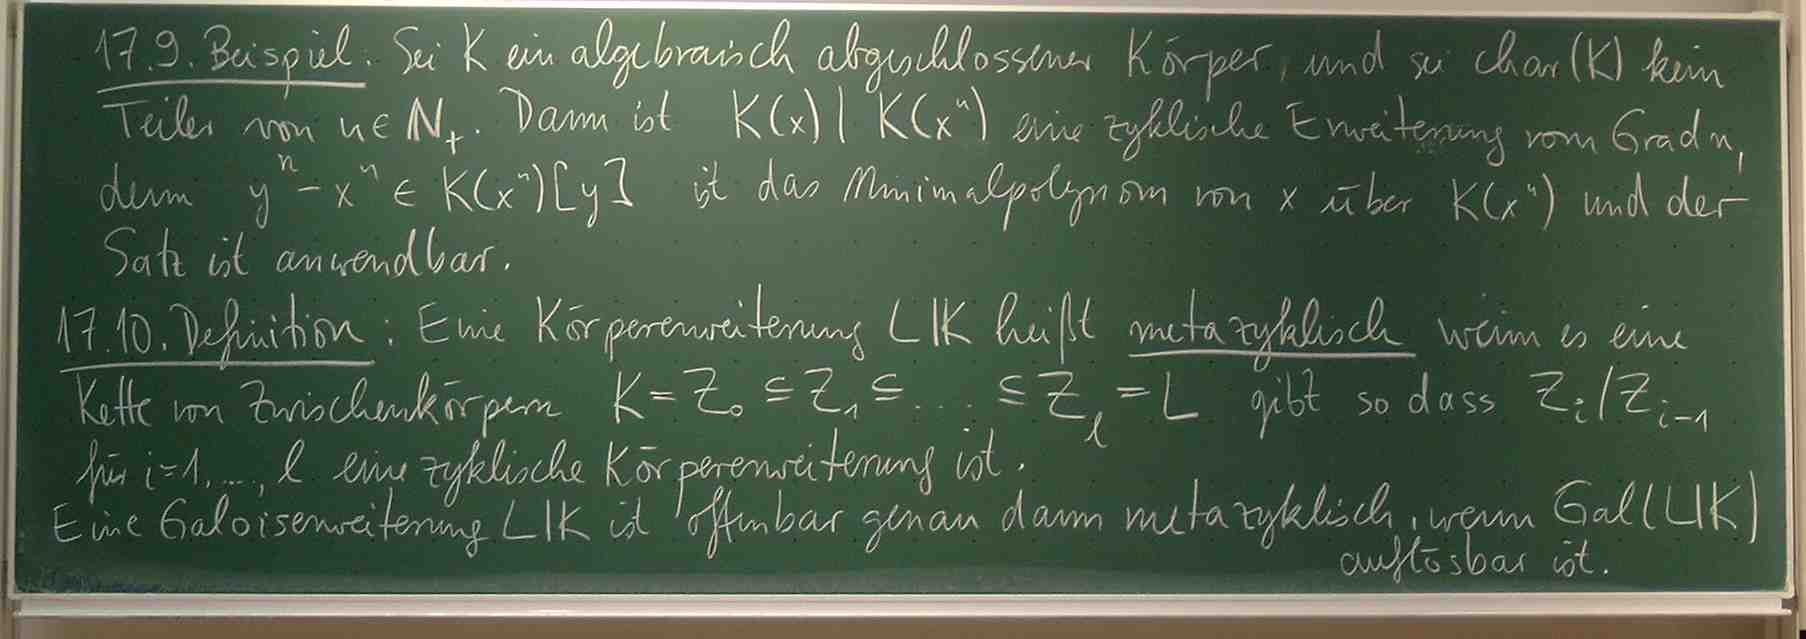 17.9. Beispiel: Sei K ein algebraisch abgeschlossener Körper, und sei char(K) kein
Teiler von n ∈ ℕ₊. Dann ist K(x) | K(xⁿ) eine zyklische Erweiterung vom Grad n,
denn yⁿ - xⁿ ∈ K(xⁿ)[y] ist das Minimalpolynom von x über K(xⁿ) und der
Satz ist anwendbar.
17.10. Definition: Eine Körpererweiterung L|K heißt metazyklisch wenn es eine
Kette von Zwischenkörpern K = Z₀ ⊆ Z₁ ⊆ ... ⊆ Z_l = L gibt so dass Z_i/Z_{i-1}
für i=1,...,l eine zyklische Körpererweiterung ist.
Eine Galoiserweiterung L|K ist offenbar genau dann metazyklisch, wenn Gal(L|K)
auflösbar ist.